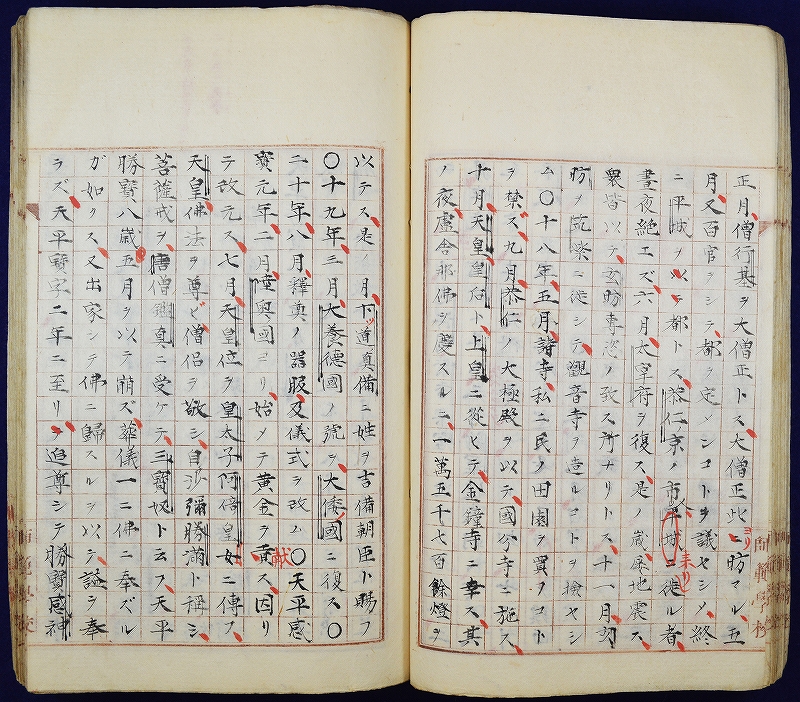 正月、僧行基ヲ大僧正トス、大僧正此ヨリ昉マル、五
月、又百官ヲシテ、都ヲ定メンコトヲ議セシメ、終
ニ平城ヲ以テ都トス、恭仁ノ京ノ市人平城ニ徙ル者、
晝夜絶エズ、六月、太宰府ヲ復ス、是歳屢地震ス、
衆皆以テ、玄昉專恣ノ致ス所ナリトス、十一月、
昉ヲ筑紫ニ徙シテ、觀音寺ヲ造ルコトヲ檢セシ
ム、〇十八年、五月、諸寺、私ニ民ノ田園ヲ買フコト
ヲ禁ズ、九月、恭仁ノ大極殿ヲ以テ、國分寺ニ施ス、
十月、天皇、皇后ト、上皇ニ從ヒテ、金鐘寺ニ幸ス、其
ノ夜、盧舎那佛ヲ慶スルニ、一萬五千七百餘燈ヲ
以テス、是ノ月、下道眞備ニ姓ヲ吉備朝臣ト賜フ
〇十九年、三月、大養德國ノ號ヲ、大倭國ニ復ス、〇
二十年、八月、釋奠ノ器服及儀式ヲ改ム、〇天平感
寳元年、二月、陸奥國ヨリ、始メテ黄金ヲ獻ス、因リ
テ改元ス、七月、天皇位ヲ皇太子阿倍皇女ニ傳フ、
天皇佛法ヲ尊ビ、僧侶ヲ敬シ、自沙彌勝滿ト稱シ、
菩薩戒ヲ、唐僧鑑眞ニ受ケテ、三寶奴ト云フ、天平
勝寶八歳五月ヲ以テ崩ズ、葬儀一ニ佛ニ奉ズル
ガ如クス、又出家シテ佛ニ歸スルヲ以テ、謚ヲ奉
ラズ、天平寶字二年ニ至リ、追尊シテ勝寶感神
師範學校